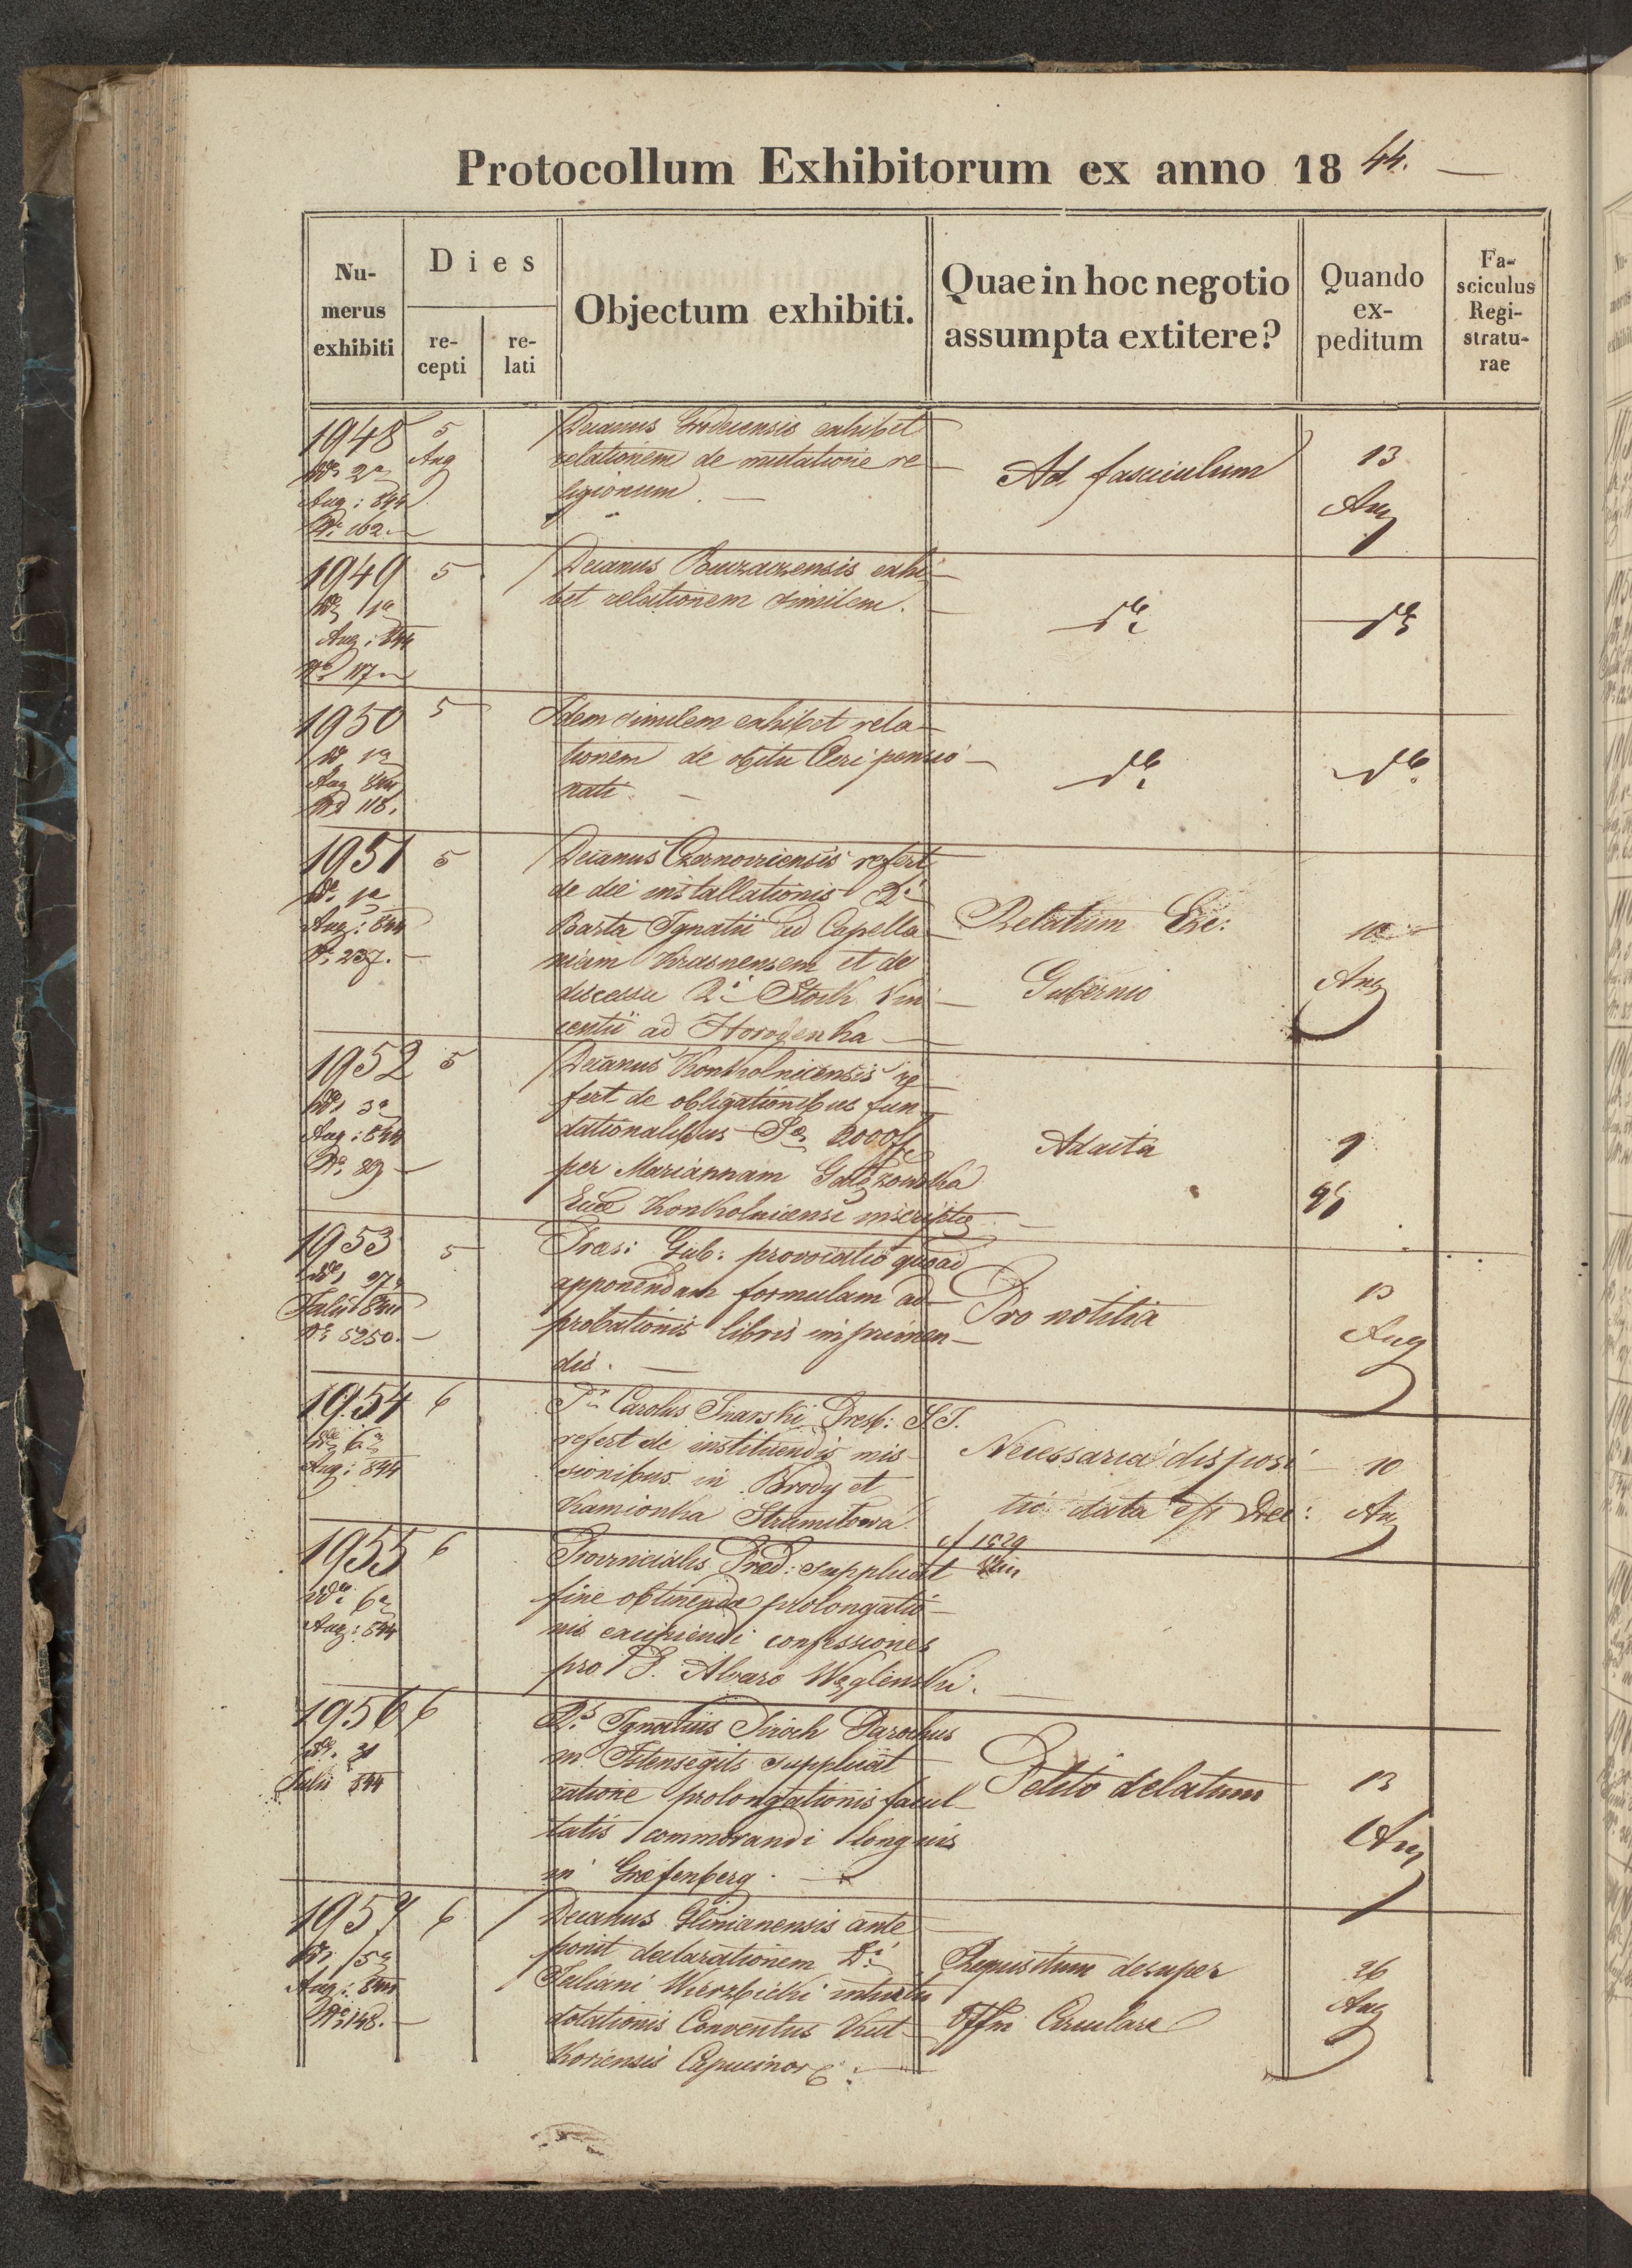 Protocollum Exhibitorum ex anno 1844.
Nu-
merus
exhibiti
Dies
re-
cepti
re-
lati
Objectum exhibiti.
Quae in hoc negotio
assumpta extitere?
Quando
ex-
peditum
Fa-
sciculus
Regi-
stratu-
rae
1948
2a
Aug: 844
Nr. 162.
5
Aug
Decanus Grodecensis exhibet
relationem de mutatione re
ligionum.
Ad fasciculum
13
Aug
1949
1a
Aug: 844
117
5
Decanus Buczaczensis exhi
bet relationem similem.
dto
dto
1950
1a
Aug 844
118.
5
Idem similem exhibet rela
tionem de obitu Cleri pensio
nati.
dto
dto
1951
1a
Aug: 844
Nr. 237.
5
Decanus Czernoviciensis refert
de die installationis
Barta Ignatii ad Capella
niam Krasnensem et de
discessu Stoch Vin
centii ad Horodenka
Relatum Exc:
Gubernio
10
Aug
1952
3a
Aug: 844
Nr. 89
5
Decanus Konkolnicensis re
fert de obligationibus fun
dationalibus 2000
per Mariannam
Konkolnicensi inscriptae
Ad acta
9
1953
27
Julii 844
Nr 5250.
5
Praes: Gub: provocatio quoad
apponendam formulam ad
probationis libris imprimen
dis.
Pro notitia
13
Aug
1954
6a
Aug: 844
6
Carolus Snarski Presb: S.J.
refert de instituendis mis
sionibus in Brody et
Kamionka Strumiłowa
Necessaria disposi
tio data est Dec:
10
Aug
1955
6a
Aug: 844
6
Provincialis Praed: supplicat
fine obtinendae prolongatio
nis excipiendi confessiones
pro P. Alvaro Węglenski.
cf 1829
1956
31
Julii 844
6
Ignatius Piroch Parochus
in Istensegits supplicat
ratione prolongationis facul
tatis commorandi longius
in Grefenberg.
Petito delatum
13
Aug
1957
5a
Aug: 844
Nr 148.
6
Decanus Glinianensis ante
ponit declarationem
Juliani Wierzbicki intuitu
dotationis Conventus Kut
koriensis Capucinor
Requisitum desuper
Offm Circulare
26
Aug